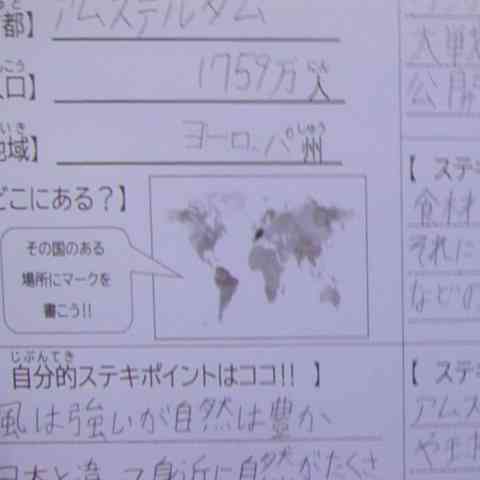 都】 アムステルダム
人口】 1759万人
地域】 ヨーロッパ州
どこにある？】
その国のある
場所にマークを
書こう!!
自分的ステキポイントはココ!! 】
風は強いが自然は豊か
日本と違って身近に自然がたくさ
大戦
公開
【 ステキ
食材
それに
などの
【 ステキ
アムス